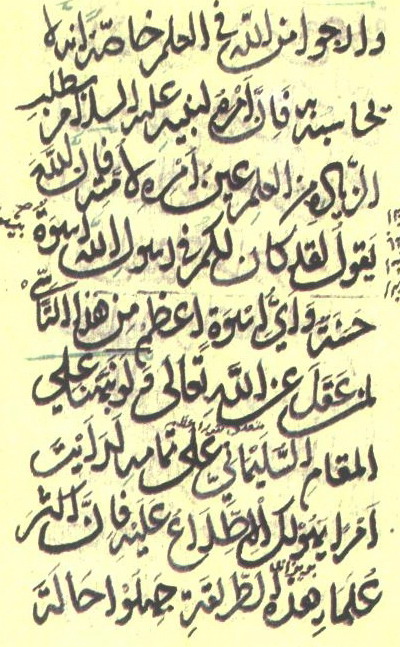 وارجوا من اللّه في العلم خاصّة انه لا
يحاسبه به فَانَّ اَمْرَهُ لنبيه عليه السلام بطلب
الزيادة من العلم عين اَمْرِه لامته فان اللّهَ
يقول لقد كان لكم في رسول اللّه اسوة
حسنة وَاَيُّ اسْوة اعظم من هذا التّاَسِّي
لمن عَقَلَ عن اللّه تعالى ولو نبهنا علي
المقام السّليمانيّ عَلَى تمامه لرَاَيْتَ
اَمْرا يهولك الاطّلاعُ عَلَيْه فاِنَّ اكثر
عُلَمَاءِ هذه الطريقةِ جهلوا حَالَةَ